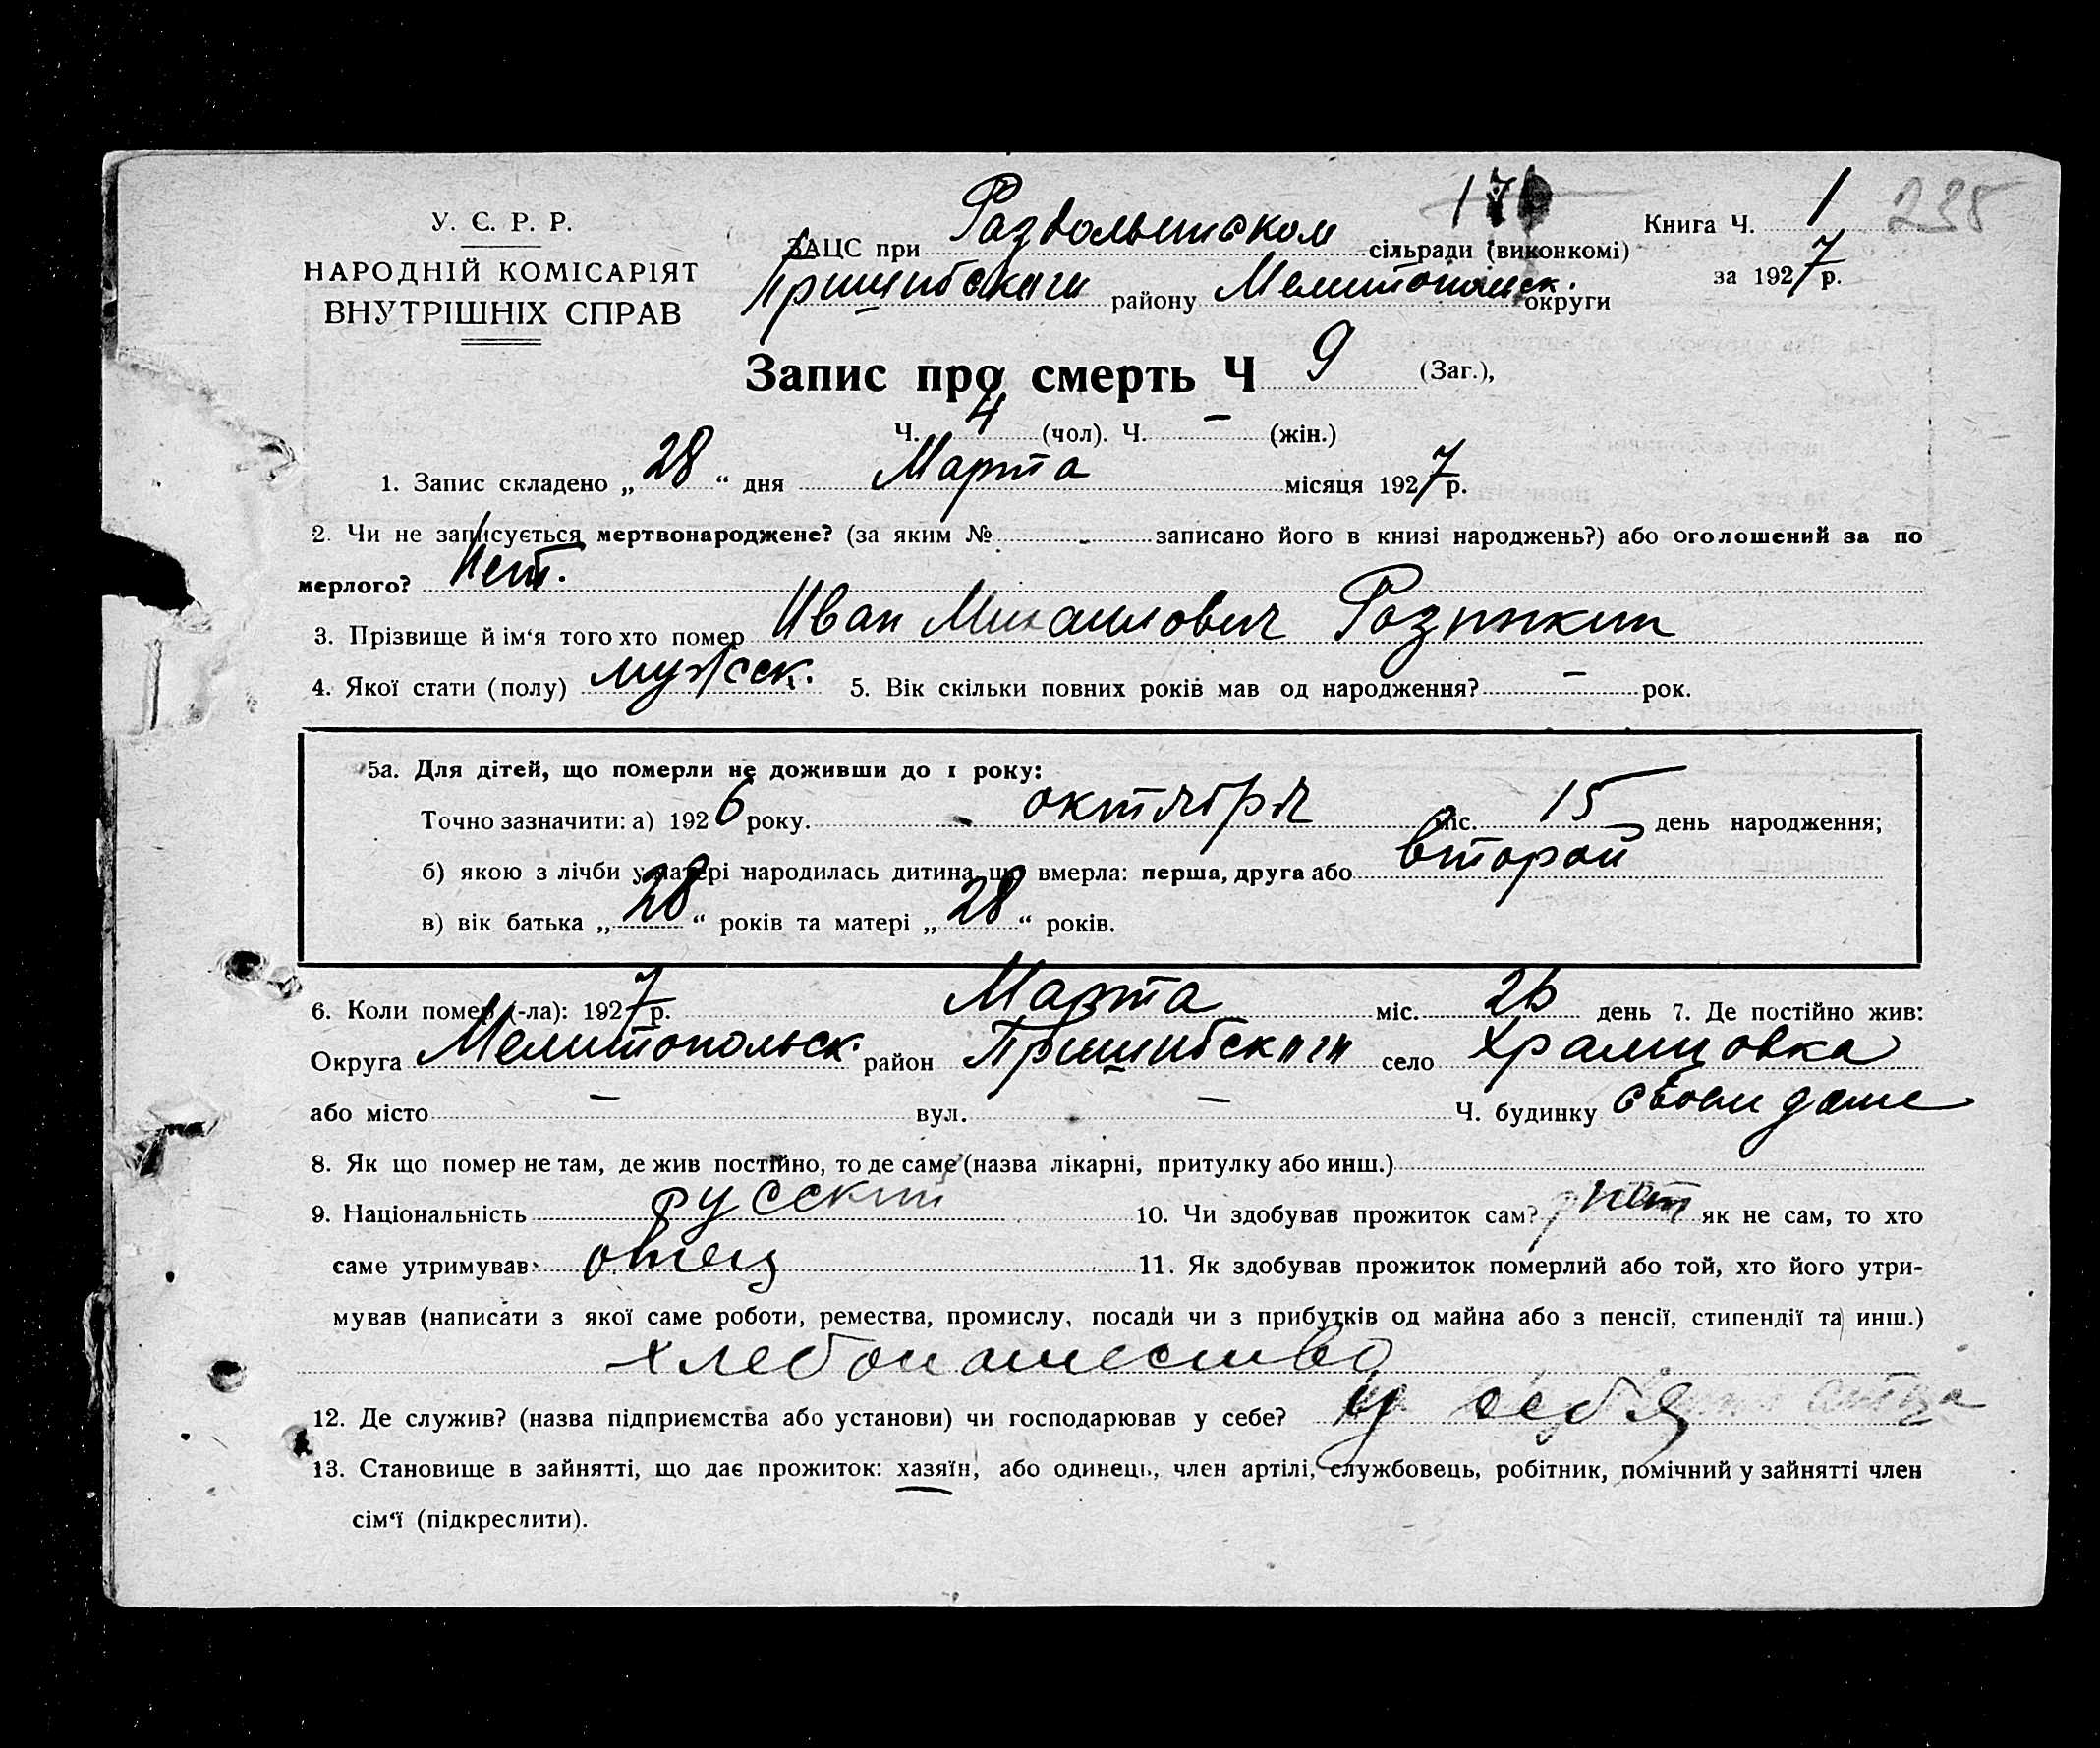 У. Є. Р. Р.
НАРОДНІЙ КОМІСАРІЯТ
ВНУТРІШНІХ СПРАВ
Книга Ч. 1 235
за 1927 р.
ЗАЦС при Раздольненском сільради (виконкомі)
Пришибскаги району Мелитопольск. округи
Запис про смерть Ч 9 (Заг.),
Ч. 4 (чол). Ч. – (жін.)
1. Запис складено „28“ дня Марта місяця 1927 р.
2. Чи не записується мертвонароджене? (за яким № - записано його в книзі народжень?) або оголошений за по
мерлого? Нет.
3. Прізвище й ім‘я того хто помер Иван Михаилович
4. Якої стати (полу) мужск. 5. Вік скільки повних років мав од народження? – рок.
5а. Для дітей, що померли не доживши до 1 року:
Точно зазначити: а) 1926 року. октября міс. 15 день народження;
б) якою з лічби у матері народилась дитина що вмерла: перша, друга або второй
в) вік батька „28“ років та матері „28“ років.
6. Коли помер (-ла): 1927 р. Марта міс. 26 день 7. Де постійно жив:
Округа Мелитопольск. район Пришибскаги село Храпцовка
або місто – вул. – Ч. будинку своем доме
8. Як що помер не там, де жив постійно, то де саме (назва лікарні, притулку або инш.)
9. Національність русский 10. Чи здобував прожиток сам? нет як не сам, то хто
саме утримував отец 11. Як здобував прожиток померлий або той, хто його утри-
мував (написати з якої саме роботи, ремества, промислу, посади чи з прибутків од майна або з пенсії, стипендії та инш.)
хлебопашество
12. Де служив? (назва підприємства або установи) чи господарював у себе? у себя
13. Становище в зайнятті, що дає прожиток: хазяїн, або одинець, член артілі, службовець, робітник, помічний у зайнятті член
сім‘ї (підкреслити).